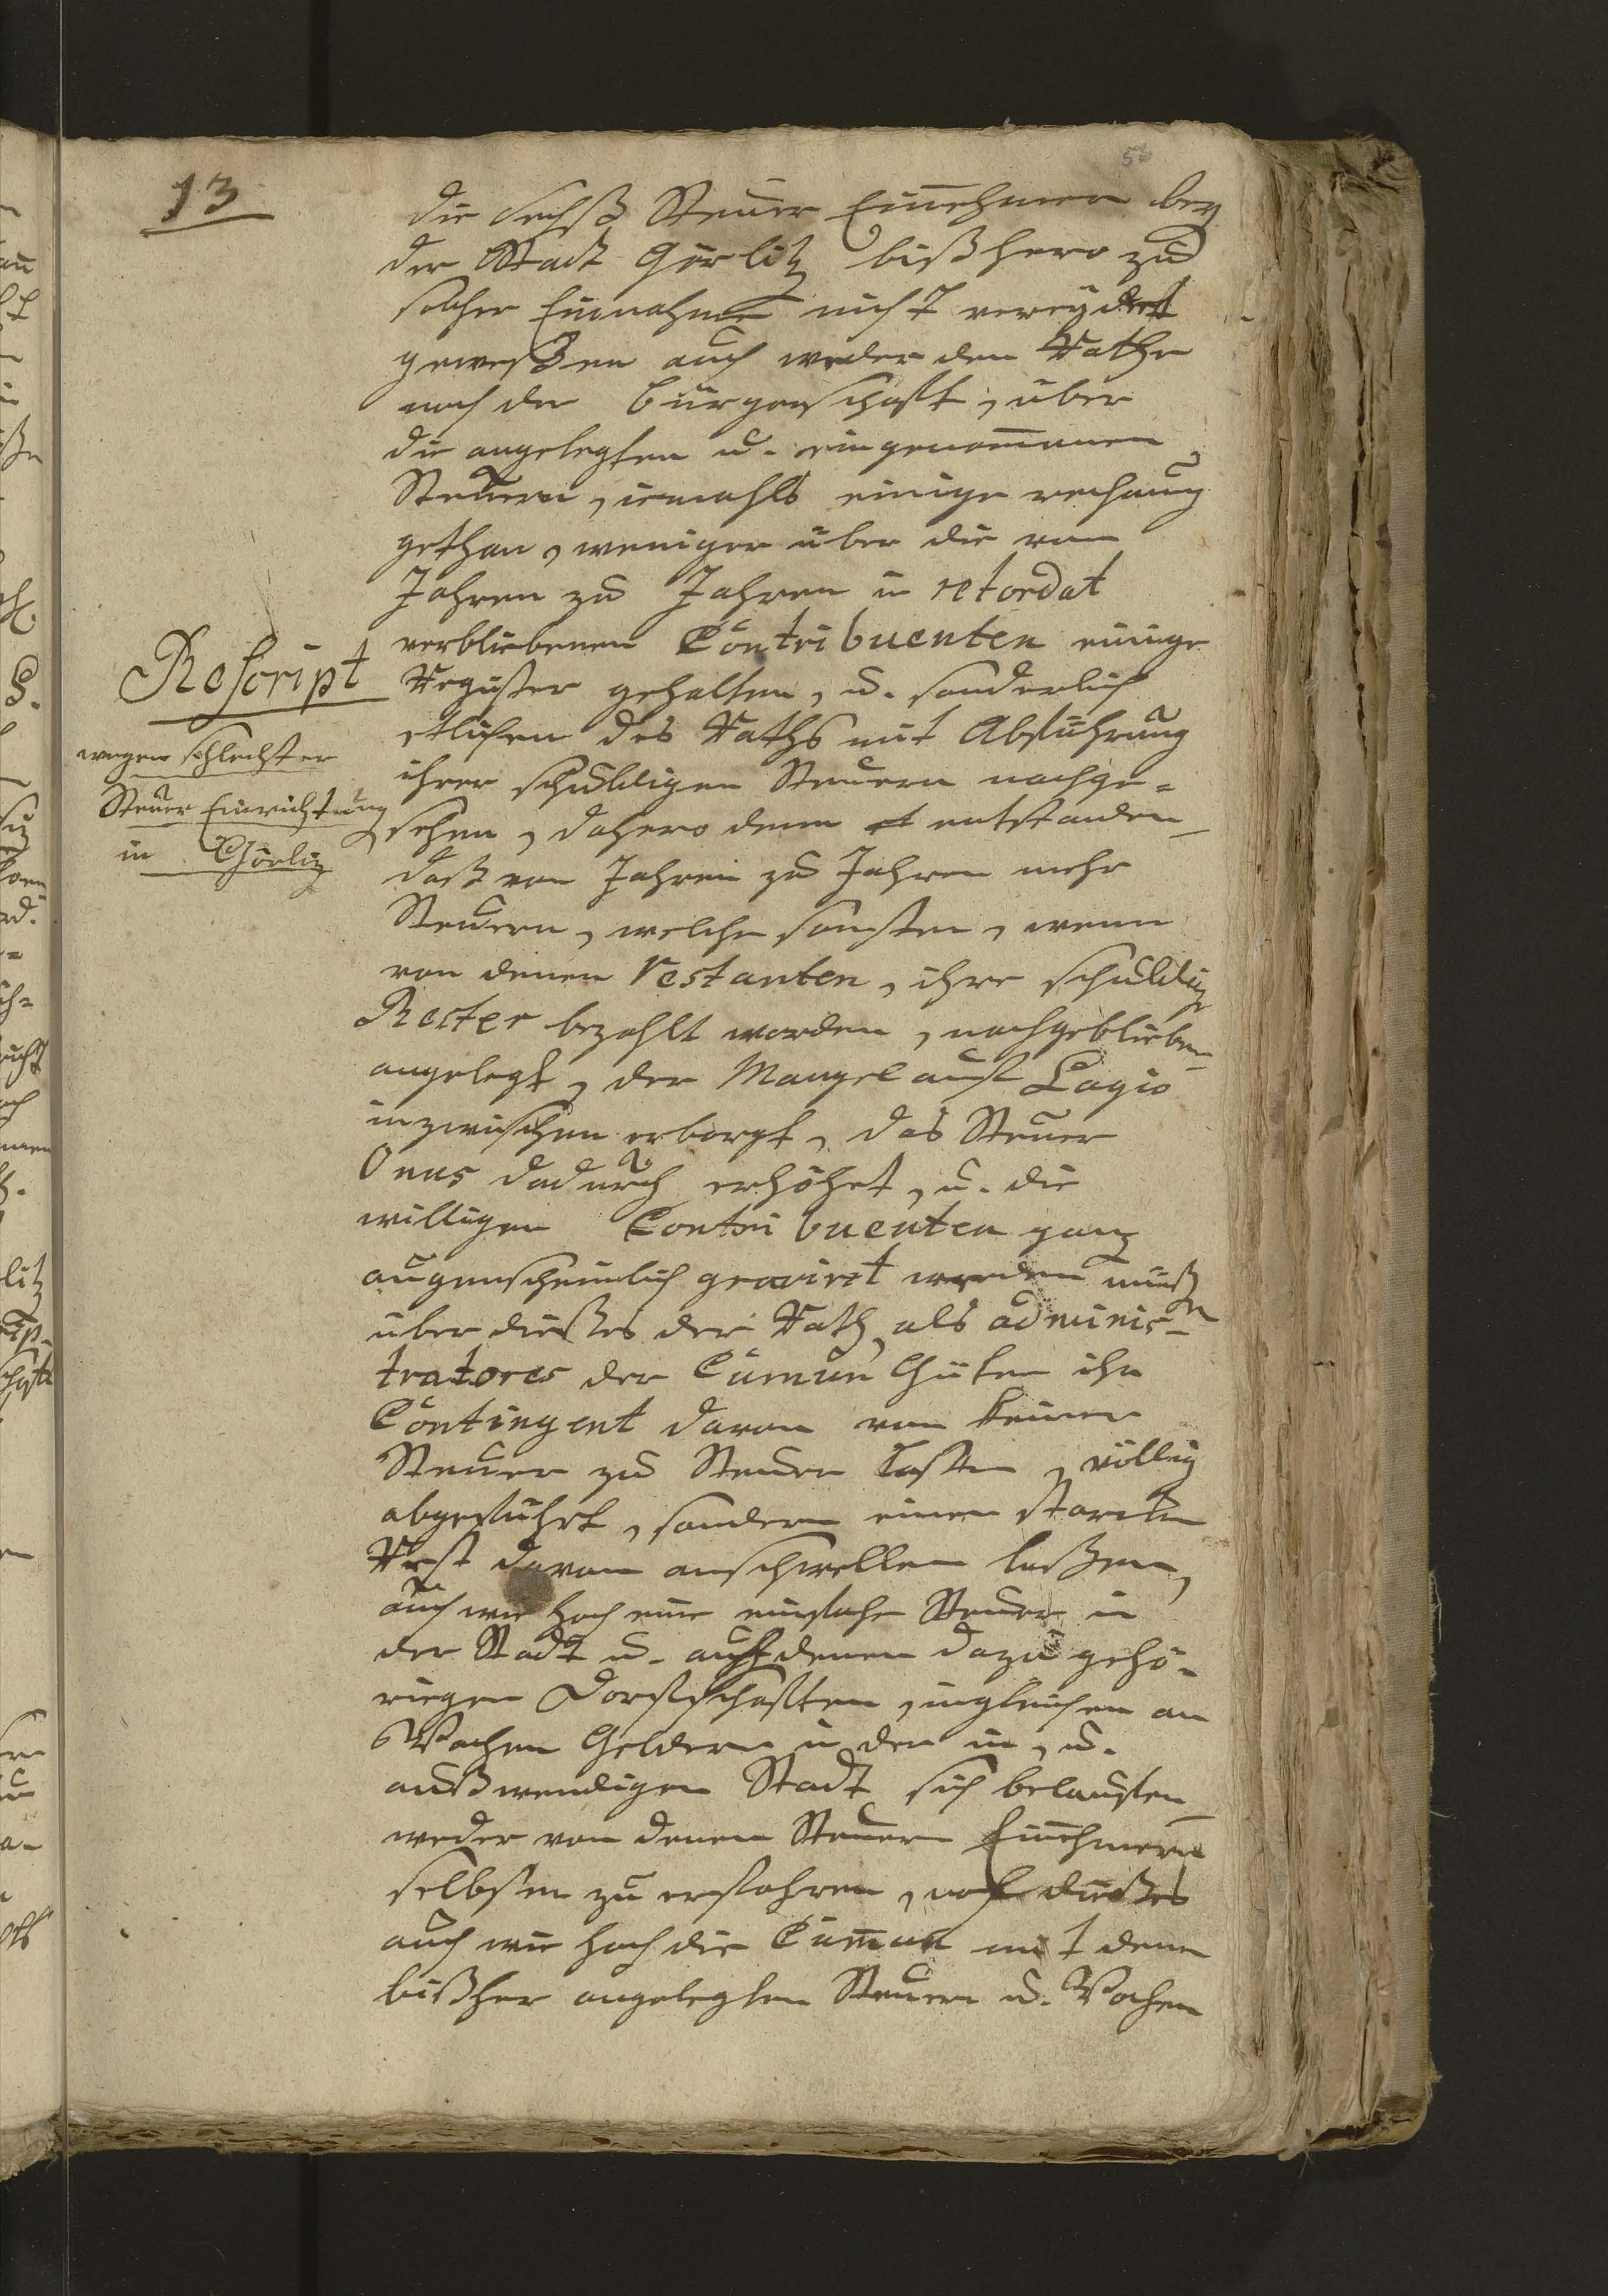 13
die sechß Steuer Einnehmer bey
der Stadt Görlitz bißhero zu
solcher Einnahme nicht vereydet
geweßen auch weder dem Rathe
noch der Bürgerschafft, über
die angelegten u. eingenom̄enen
Steuern, iemahls einige rechnung
gethan, weniger über die von
Jahren zu Jahren in retardat
verbliebenen Contribuenten einige
Register gehalten, u. sonderlich
etlichen des Raths mit Abführung
ihrer schuldigen Steuern nachge=
sehen, dahero denn entstanden
daß von Jahren zu Jahren mehr
Steuern, welche sonsten, wenn
von denen Restanten, ihre schuldig
Rester bezahlt worden, nachgeblieben
angelegt, der Mangel auf Lagio
inzwischen erborgt, das Steuer
Onus dadurch erhöhet, u. die
willigen Contribuenten ganz
augenscheinlich graviret werden müßen
über dießes der Rath, als adminis-
tratores der Cumun Güter ihr
Contingent davon von keiner
Steuer zu Steuer Casten, völlig
abgeführt, sondern einen starcken
Rest davon anschwellen laßen,
auch wie hoch eine einfache Steuer in
der Stadt u. auff denen dazu gehö-
rigen Dorffschafften, ingleichen an
Wachen Geldern in der in, u.
außwendigen Stadt sich belauffen
weder von denen Steuern Einnehmern
selbsten zu erfahren, noch dießes
auch wie hoch die Cum̄un mit denen
bißher angelegten Steuern u. Wachen
Rescript
wegen schlechter
Steuer Einrichtung
in Görliz